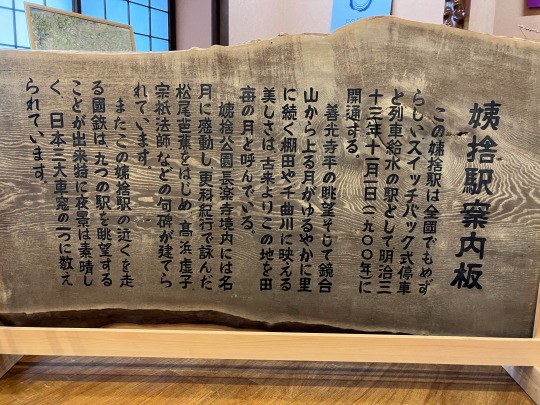 姨捨駅案内板
この姨捨駅は全國でもめず
らしいスイッチバック式停車
と列車給水の駅として明治三
十三年十一月一日(一九〇〇年)に
開通する。
善光寺平の眺望そして鏡台
山から上る月がゆるやかに里
に続く棚田や千曲川に映える
美しさは古来よりこの地を田
毎の月と呼んでいる。
姨捨公園長楽寺境内には名
月に感動し更科紀行で詠んだ
松尾芭蕉をはじめ、髙浜虚子
宗祇法師などの句碑が建てら
れています。
またこの姨捨駅の近くを走
る國鉄は、九つの駅を眺望する
ことが出来特に夜景は素晴し
く、日本三大車窓の一つに数え
られています。